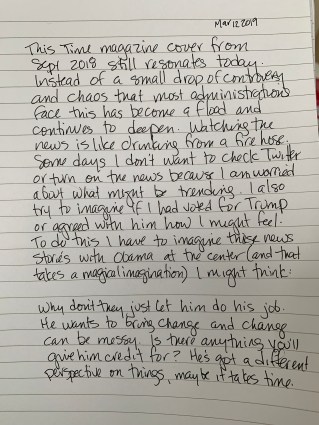 Mar 12 2019
This Time magazine cover from
Sept 2018 still resonates today.
Instead of a small drop of controversy
and chaos that most administrations
face this has become a flood and
continues to deepen. Watching the
news is like drinking from a fire hose.
Some days I don't want to check Twitter
or turn on the news because I am worried
about what might be trending. I also
try to imagine if I had voted for Trump
or agreed with him how I might feel.
To do this I have to imagine these news
stories with Obama at the center (and that
takes a magical imagination) I might think:
Why don't they just let him do his job.
He wants to bring change and change
can be messy. Is there anything you'll
give him credit for? He's got a different
perspective on things, maybe it takes time.